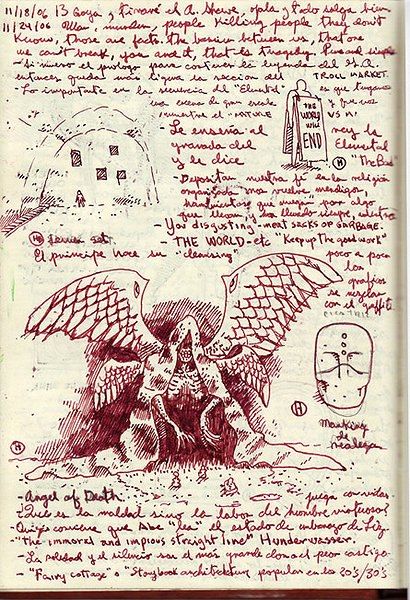 11/18/06 B Goya, y tiraré el A. Shewe, opla, y todo salga bien
11/29/06 Man, murder, people killing people they don't
know, those are facts, the barrier between us, that one
we can't break, you and I, that is tragedy. Pura and simple
Si muevo el prólogo para contener la leyenda del G.A.
entonces queda más ligera la sección del TROLL MARKET.
Lo importante en la secuencia del "Elemental" es que tengamos
una escena de gran escala y que nos
muestra el "ARTICLE VS N.Y.
- Le enseña al rey la
granada del Elemental
y le dice "The Bud"
THE WORLD WILL END
H
- Depositar nuestra fé en la religión
organizada nos vuelve mendigos
que
que llevan y ha llevado siempre, adentro
- You disgusting meat sacks OF GARBAGE.
- THE WORLD - etc "Keep up the good work"
H
El príncipe hace su "cleansing" poco a poco
los
graficos
se mezclan
con el graffiti
H
Marking
de
realeza
H
- Angel of Death. juega con vidas.
- ¿Qué es la maldad sino la labor del hombre virtuoso?
- Quizás conserve que Abe "lea" el estado de embarazo de Liz.
"The immoral and impious straight line" Hundertwasser.
- La soledad y el silencio son el más grande don o el peor castigo.
- "Fairy cottage" o "Storybook architecture popular en los 20's/30's